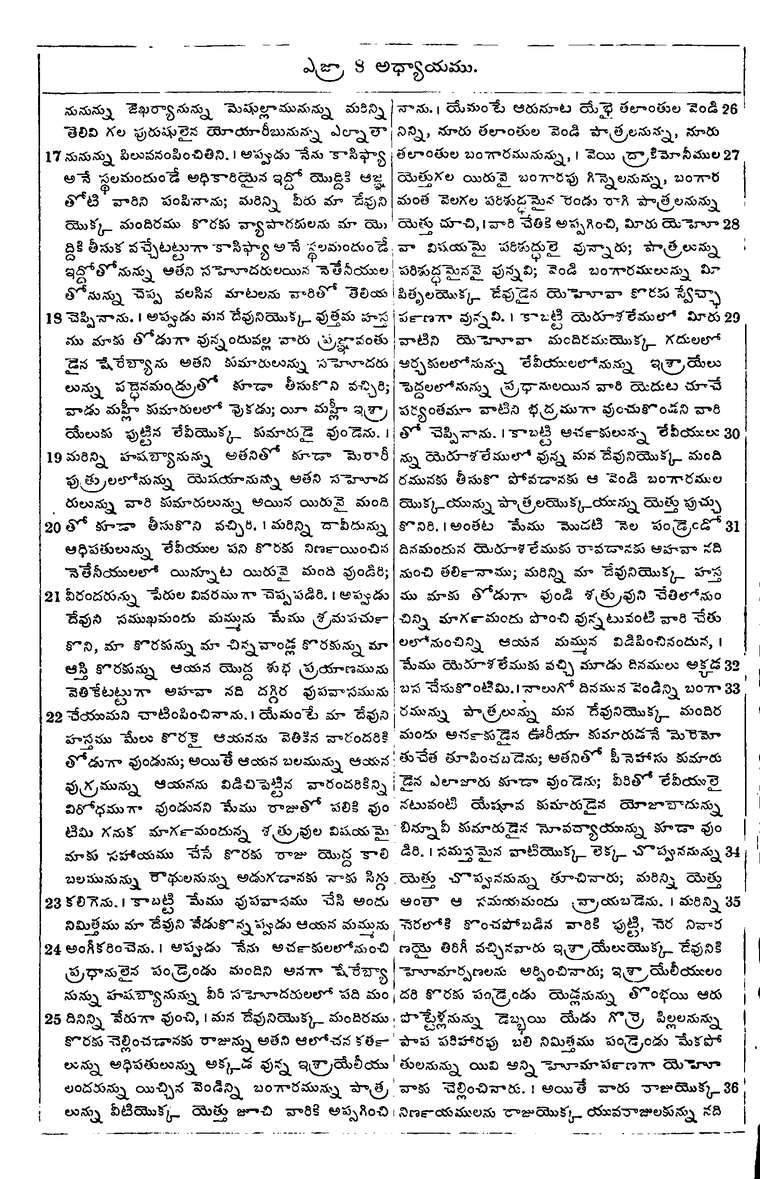 ఎజ్రా 8 అధ్యాయము.
నునున్ను జెఖర్యానున్ను మెషుల్లామునున్ను మరిన్ని
తెలివి గల పురుషులైన యోయారీబునున్ను ఎల్నాతా
17 నునున్ను పిలువనంపించితిని. । అప్పుడు నేను కాసిఫ్యా
అనే స్థలమందుండే అధికారియైన ఇద్దో యొద్దికి ఆజ్ఞ
తోటి వారిని పంపినాను; మరిన్ని వీరు మా దేవుని
యొక్క మందిరము కొరకు వ్యాపారకులను మా యొ
ద్దికి తీసుక వచ్చేటట్టుగా కాసిఫ్యా అనే స్థలమందుండే
ఇద్దోతోనున్ను అతని సహోదరులయిన నెతేనీయుల
తోనున్ను చెప్ప వలసిన మాటలను వారితో తెలియ
18 చెప్పినాను. । అప్పుడు మన దేవునియొక్క వుత్తమ హస్త
ము మాకు తోడుగా వున్నందువల్ల వారు ప్రజ్ఞావంతు
డైన షేరేబ్యాను అతని కుమారులున్ను సహోదరు
లున్ను పద్ధెనమండ్రుతో కూడా తీసుకొని వచ్చిరి;
వాడు మహ్లీ కుమారులలో వొకడు; యీ మహ్లీ ఇశ్రా
యేలుకు పుట్టిన లేవీయొక్క కుమారుడై వుండెను. ।
19 మరిన్ని హషబ్యానున్ను అతనితో కూడా మెరారీ
పుత్రులలోనున్ను యెషయానున్ను అతని సహోద
రులున్ను వారి కుమారులున్ను అయిన యిరువై మంది
20 తో కూడా తీసుకొని వచ్చిరి. । మరిన్ని దావీదున్ను
ఆధిపతులున్ను లేవీయుల పని కొరకు నిర్ణయించిన
నెతేనీయులలో యిన్నూట యిరువై మంది వుండిరి;
21 వీరందరున్ను పేరుల వివరముగా చెప్పపడిరి. । అప్పుడు
దేవుని సముఖమందు మమ్మును మేము శ్రమపర్చు
కొని, మా కొరకున్ను మా చిన్నవాండ్ల కొరకున్ను మా
ఆస్తి కొరకున్ను ఆయన యొద్ద శుభ ప్రయాణమును
వెతికేటట్టుగా అహవా నది దగ్గిర వుపవాసమును
22 చేయుమని చాటింపించినాను. । యేమంటే మా దేవుని
హస్తము మేలు కొరకై ఆయనను వెతికిన వారందరికి
తోడుగా వుండును; అయితే ఆయన బలమున్ను ఆయన
వుగ్రమున్ను ఆయనను విడిచిపెట్టిన వారందరికిన్ని
విరోధముగా వుండునని మేము రాజుతో పలికి వుం
టిమి గనుక మార్గమందున్న శత్రువుల విషయమై
మాకు సహాయము చేసే కొరకు రాజు యొద్ద కాలి
బలమునున్ను రౌథులనున్ను అడుగడానకు నాకు సిగ్గు
23 కలిగెను. । కాబట్టి మేము వుపవాసము చేసి అందు
నిమిత్తము మా దేవుని వేడుకొన్నప్పుడు ఆయన మమ్మును
24 అంగీకరించెను. । అప్పుడు నేను అర్చకులలోనుంచి
ప్రధానులైన పండ్రెండు మందిని అనగా షేరేబ్యా
నున్ను హషబ్యానున్ను వీరి సహోదరులలో పది మం
25 దినిన్ని వేరుగా వుంచి, । మన దేవునియొక్క మందిరము
కొరకు చెల్లించడానకు రాజున్ను అతని ఆలోచన కర్త
లున్ను అధిపతులున్ను అక్కడ వున్న ఇశ్రాయేలీయు
లందరున్ను యిచ్చిన వెండినిన్ని బంగారమున్ను పాత్ర
లున్ను వీటియొక్క యెత్తు జూచి వారికి అప్పగించి
నాను. । యేమంటే ఆరునూట యేభై తలాంతుల వెండి 26
నిన్ని, నూరు తలాంతుల వెండి పాత్రలనున్ను, నూరు
తలాంతుల బంగారమునున్ను, । వెయి ద్రాకిమోనీముల 27
యెత్తుగల యిరువై బంగారపు గిన్నెలనున్ను, బంగార
మంత వెలగల పరిశుద్ధమైన రెండు రాగి పాత్రలనున్ను
యెత్తు చూచి, । వారి చేతికి అప్పగించి, మీరు యెహో 28
వా విషయమై పరిశుద్ధులై వున్నారు; పాత్రలున్ను
పరిశుద్ధమైనవై వున్నవి; వెండి బంగారములున్ను మీ
పితృలయొక్క దేవుడైన యెహోవా కొరకు స్వేచ్ఛా
ర్పణగా వున్నవి. । కాబట్టి యెరూశలేములో మీరు 29
వాటిని యెహోవా మందిరముయొక్క గదులలో
అర్చకులలోనున్న లేవీయులలోనున్ను ఇశ్రాయేలు
పెద్దలలోనున్ను ప్రధానులయిన వారి యెదుట చూచే
పర్యంతమూ వాటిని భద్రముగా వుంచుకొండని వారి
తో చెప్పినాను. । కాబట్టి అర్చకులున్ను లేవీయులు 30
న్ను యెరూశలేములో వున్న మన దేవునియొక్క మంది
రమునకు తీసుకొ పోవడానకు ఆ వెండి బంగారముల
యొక్కయున్ను పాత్రలయొక్కయున్ను యెత్తు పుచ్చు
కొనిరి. । అంతట మేము మొదటి నెల పండ్రెండో 31
దినమందున యెరూశలేముకు రావడానకు అహవా నది
నుంచి తర్లినాము; మరిన్ని మా దేవునియొక్క హస్త
ము మాకు తోడుగా వుండి శత్రువుని చేతిలోనుం
చిన్ని మార్గమందు పొంచి వున్నటువంటి వారి చేతు
లలోనుంచిన్ని ఆయన మమ్మున విడిపించినందున, ।
మేము యెరూశలేముకు వచ్చి మూడు దినములు అక్కడ 32
బస చేసుకొంటిమి. । నాలుగో దినమున వెండిన్ని బంగా 33
రమున్ను పాత్రలున్ను మన దేవునియొక్క మందిర
మందు అర్చకుడైన ఊరీయా కుమారుడనే మెరెమో
తుచేత తూపించబడెను; అతనితో పీనెహాసు కుమారు
డైన ఎలాజారు కూడా వుండెను; వీరితో లేవీయులై
నటువంటి యేషూవ కుమారుడైన యోజాబాదున్ను
బిన్నూవీ కుమారుడైన నోవద్యాయున్ను కూడా వుం
డిరి. । సమస్తమైన వాటియొక్క లెక్క చొప్పుననున్ను 34
యెత్తు చొప్పుననున్ను తూచినారు; మరిన్ని యెత్తు
అంతా ఆ సమయమందు వ్రాయబడెను. । మరిన్ని 35
చెరలోకి కొంచపోబడిన వారికి పుట్టి, చెర నివార
ణయై తిరిగీ వచ్చినవారు ఇశ్రాయేలుయొక్క దేవునికి
హోమార్పణలను అర్పించినారు; ఇశ్రాయేలీయులం
దరి కొరకు పండ్రెండు యెడ్లనున్ను తొంభయి ఆరు
పొట్టేళ్లనున్ను డెబ్బయి యేడు గొర్రె పిల్లలనున్ను
పాప పరిహారపు బలి నిమిత్తము పండ్రెండు మేకపో
తులనున్ను యివి అన్ని హోమార్పణగా యెహో
వాకు చెల్లించినారు. । అయితే వారు రాజుయొక్క 36
నిర్ణయములను రాజుయొక్క యువరాజులకున్ను నది